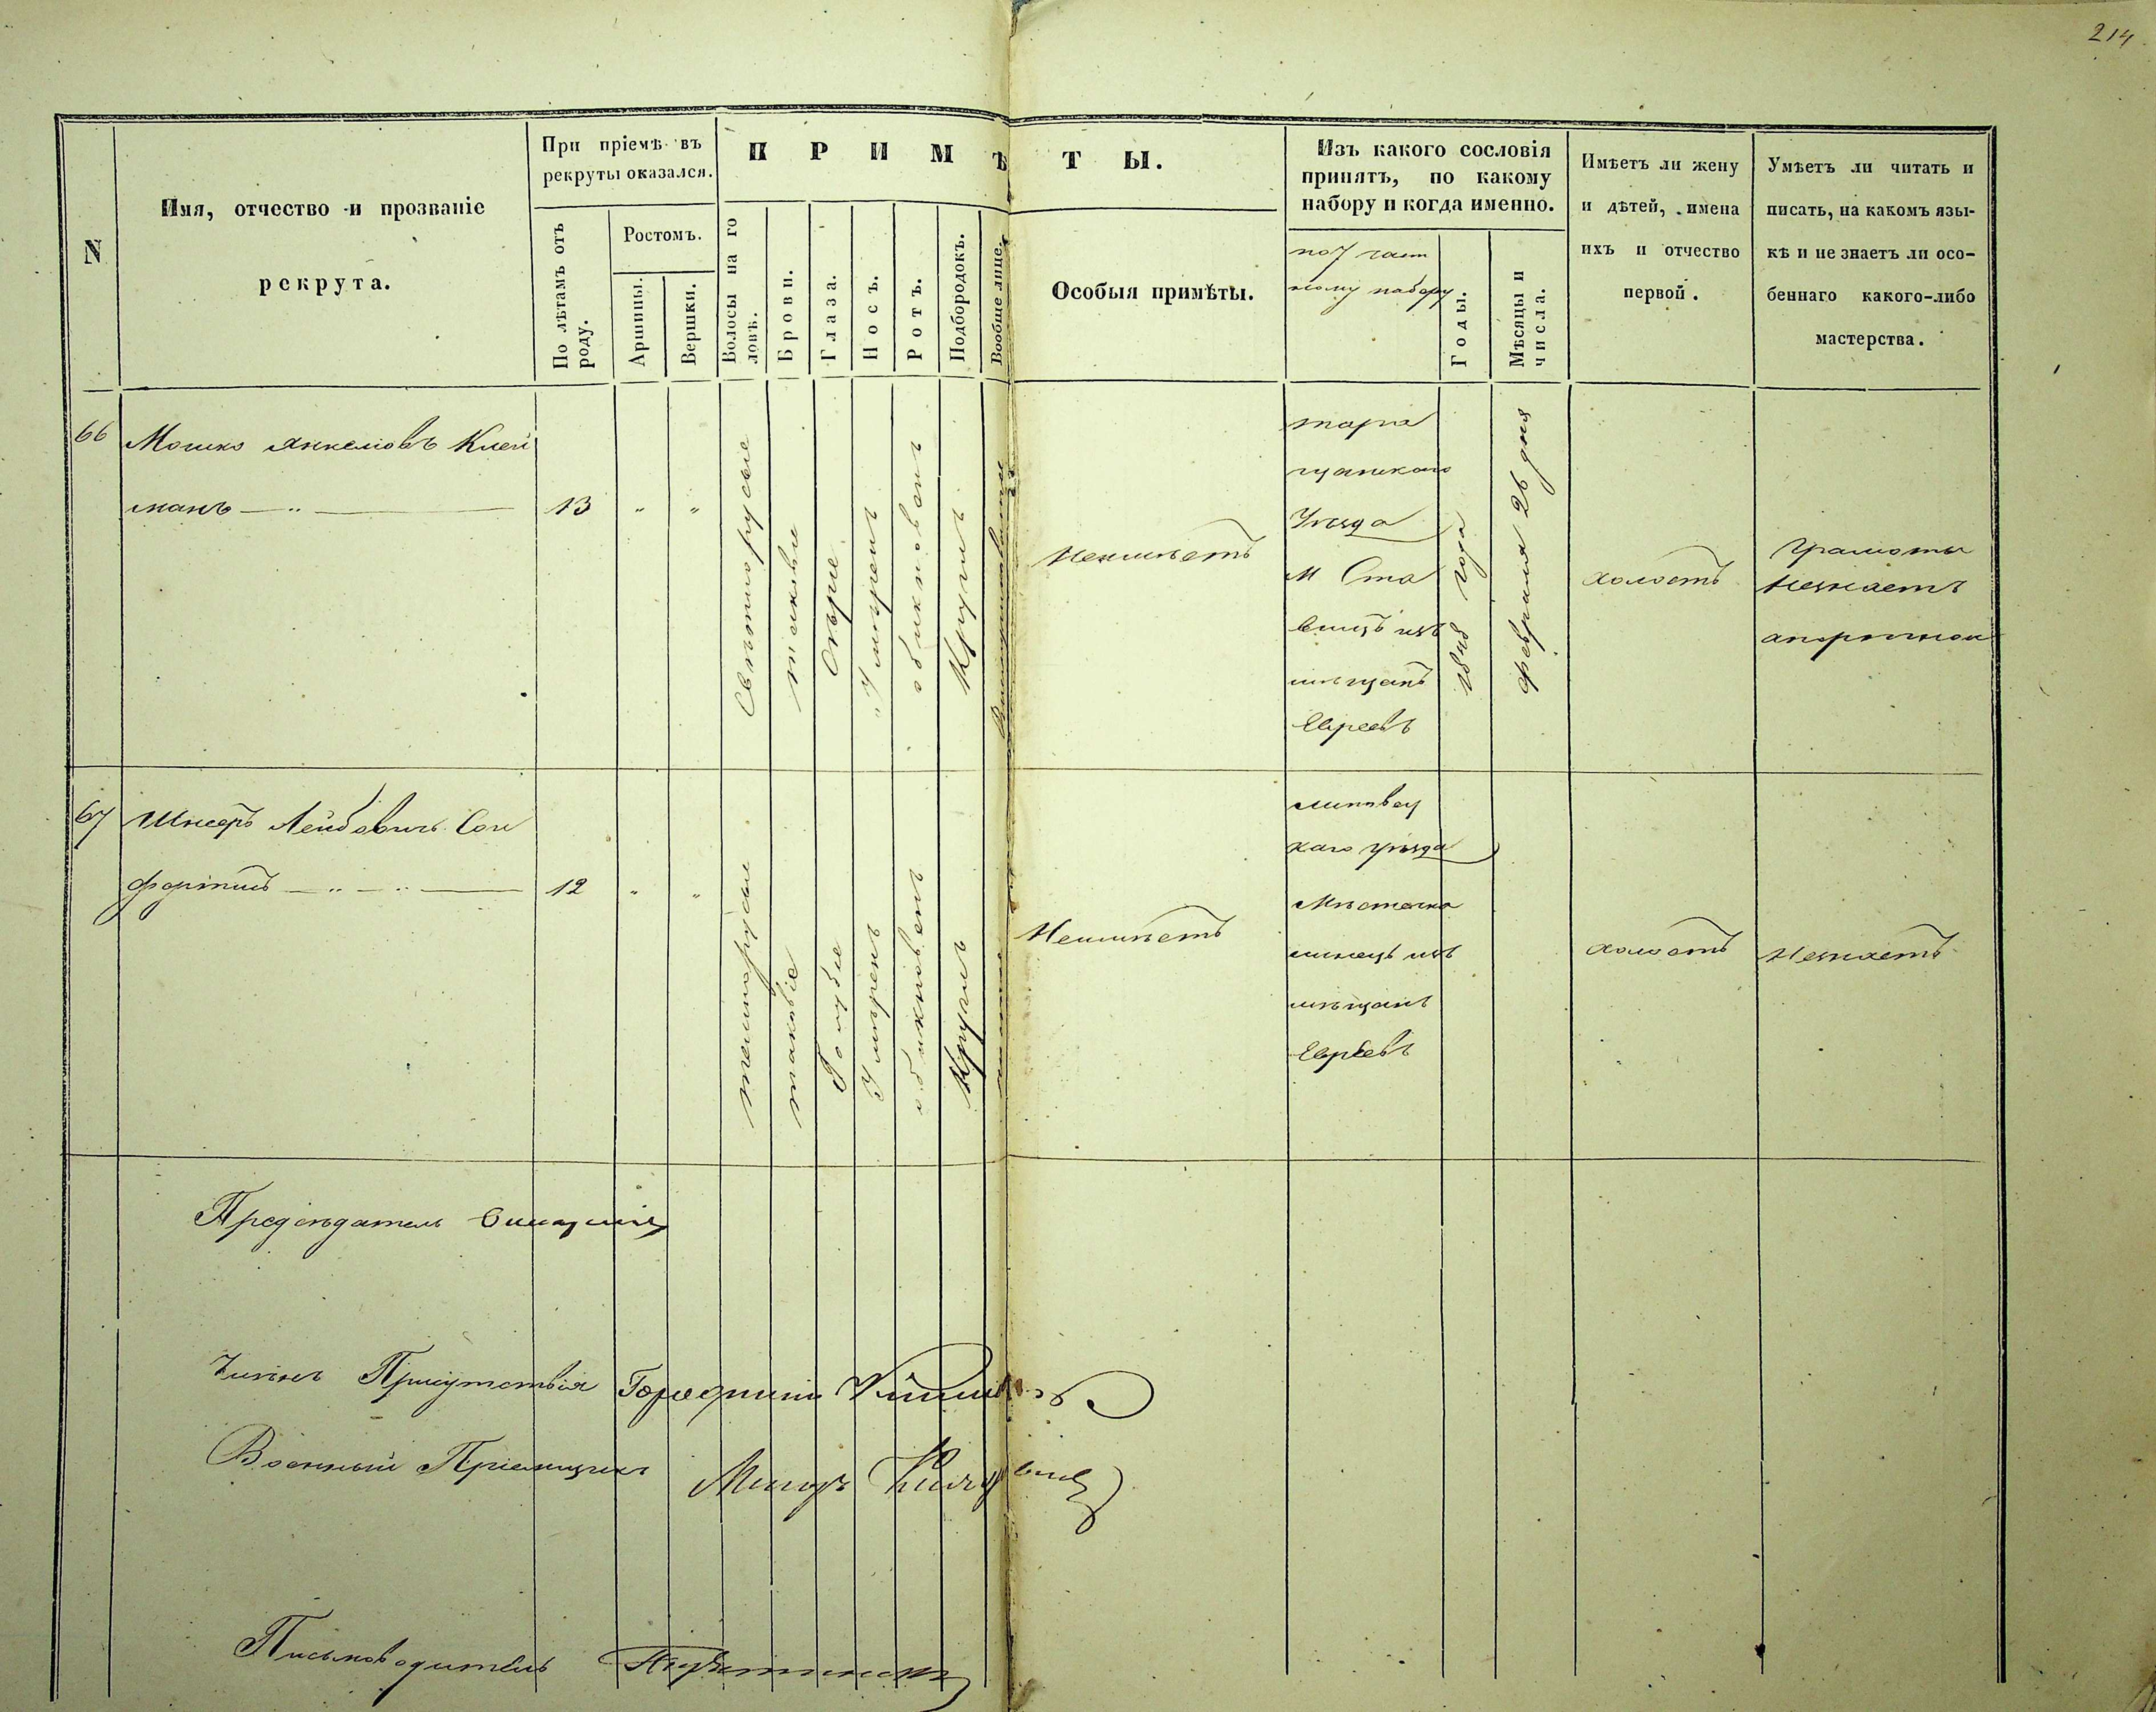 214
N
Имя, отчество и прозваніе
рекрута.
При пріемѣ въ
рекруты оказался.
По лѣтамъ отъ
роду.
Ростомъ.
Аршины.
Вершки.
ПРИМѢТЫ.
Волосы на го
ловѣ.
Брови.
Глаза.
Носъ.
Ротъ.
Подбородокъ.
Вообще лице.
Особыя примѣты.
Изъ какого сословія
принятъ, по какому
набору и когда именно.
по 7 част
ному набору
Годы.
Мѣсяцы и
числа.
Имѣетъ ли жену
и дѣтей, имена
ихъ и отчество
первой.
Умѣетъ ли читать и
писать, на какомъ язы-
кѣ и не знаетъ ли осо-
беннаго какого-либо
мастерства.
66
Мошко Янкелювъ Клей
манъ
13
"
"
Свѣтлорусые
таковые
Сѣрые
Умѣрен
обикновен
Кругл
Неимѣетъ
тара
щанскаго
Уѣзда
м Ста
вищъ изъ
мѣщанъ
Евреевъ
1848 года
февраля 26 дня
холостъ
Грамоты
незнаетъ
67
Лейбовичъ
12
"
"
темнорусые
таковіе
Голубые
Умѣрен
обикновен
Кругл
Неимѣетъ
липовец
каго уѣзда
Мѣстечка
линецъ изъ
мѣщанъ
Евреевъ
холостъ
Незнаетъ
Предсѣдатель
Члены Присутствія Городничій
Военный Пріемщикъ Маіоръ
Письмоводитель